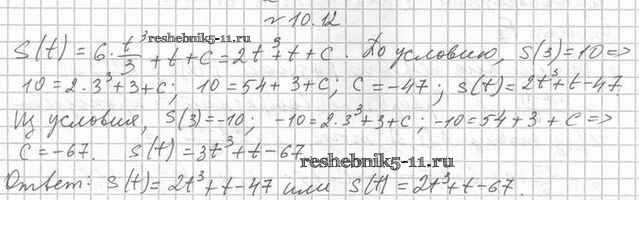 № 10.12
reshebnik5-11.ru
S(t) = 6 · t³/3 + t + C = 2t³ + t + C. По условию, S(3) = 10 =>
10 = 2·3³ + 3 + C; 10 = 54 + 3 + C; C = -47; S(t) = 2t³ + t - 47.
Из условия, S(3) = -10; -10 = 2·3³ + 3 + C; -10 = 54 + 3 + C =>
C = -67. S(t) = 3t³ + t - 67
reshebnik5-11.ru
Ответ: S(t) = 2t³ + t - 47 или S(t) = 2t³ + t - 67.